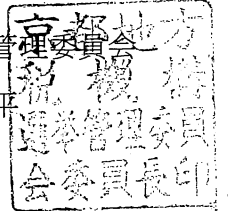 管理委員会
平
京都地方
税機構
選挙管理委員
会委員長印